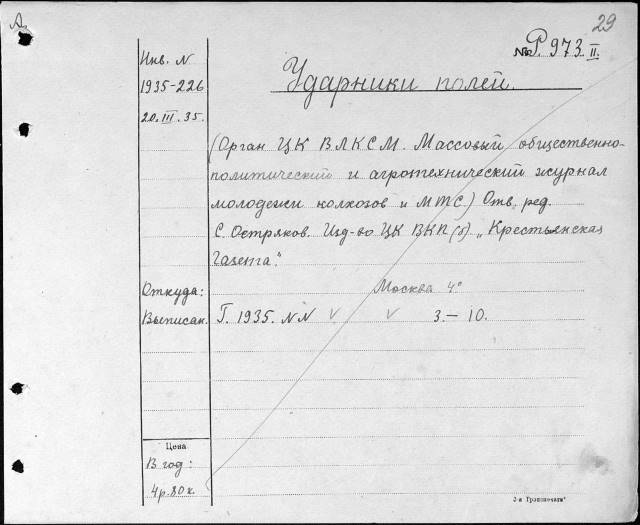 А.
29
№ Р. 973 II.
Инв. N
1935-226
20.III.35.
Ударники полей.
(Орган ЦК ВЛКСМ. Массовый общественно-
политический и агротехнический журнал
молодежи колхозов и МТС.) Отв. ред.
С. Остряков. Изд-во ЦК ВКП(б) „Крестьянская
Газета".
Москва 4°
Откуда:
Выписан.
Г. 1935. NN √ √ 3.– 10.
Цена
В год:
4 р. 80 к.
3-я Транспечати"